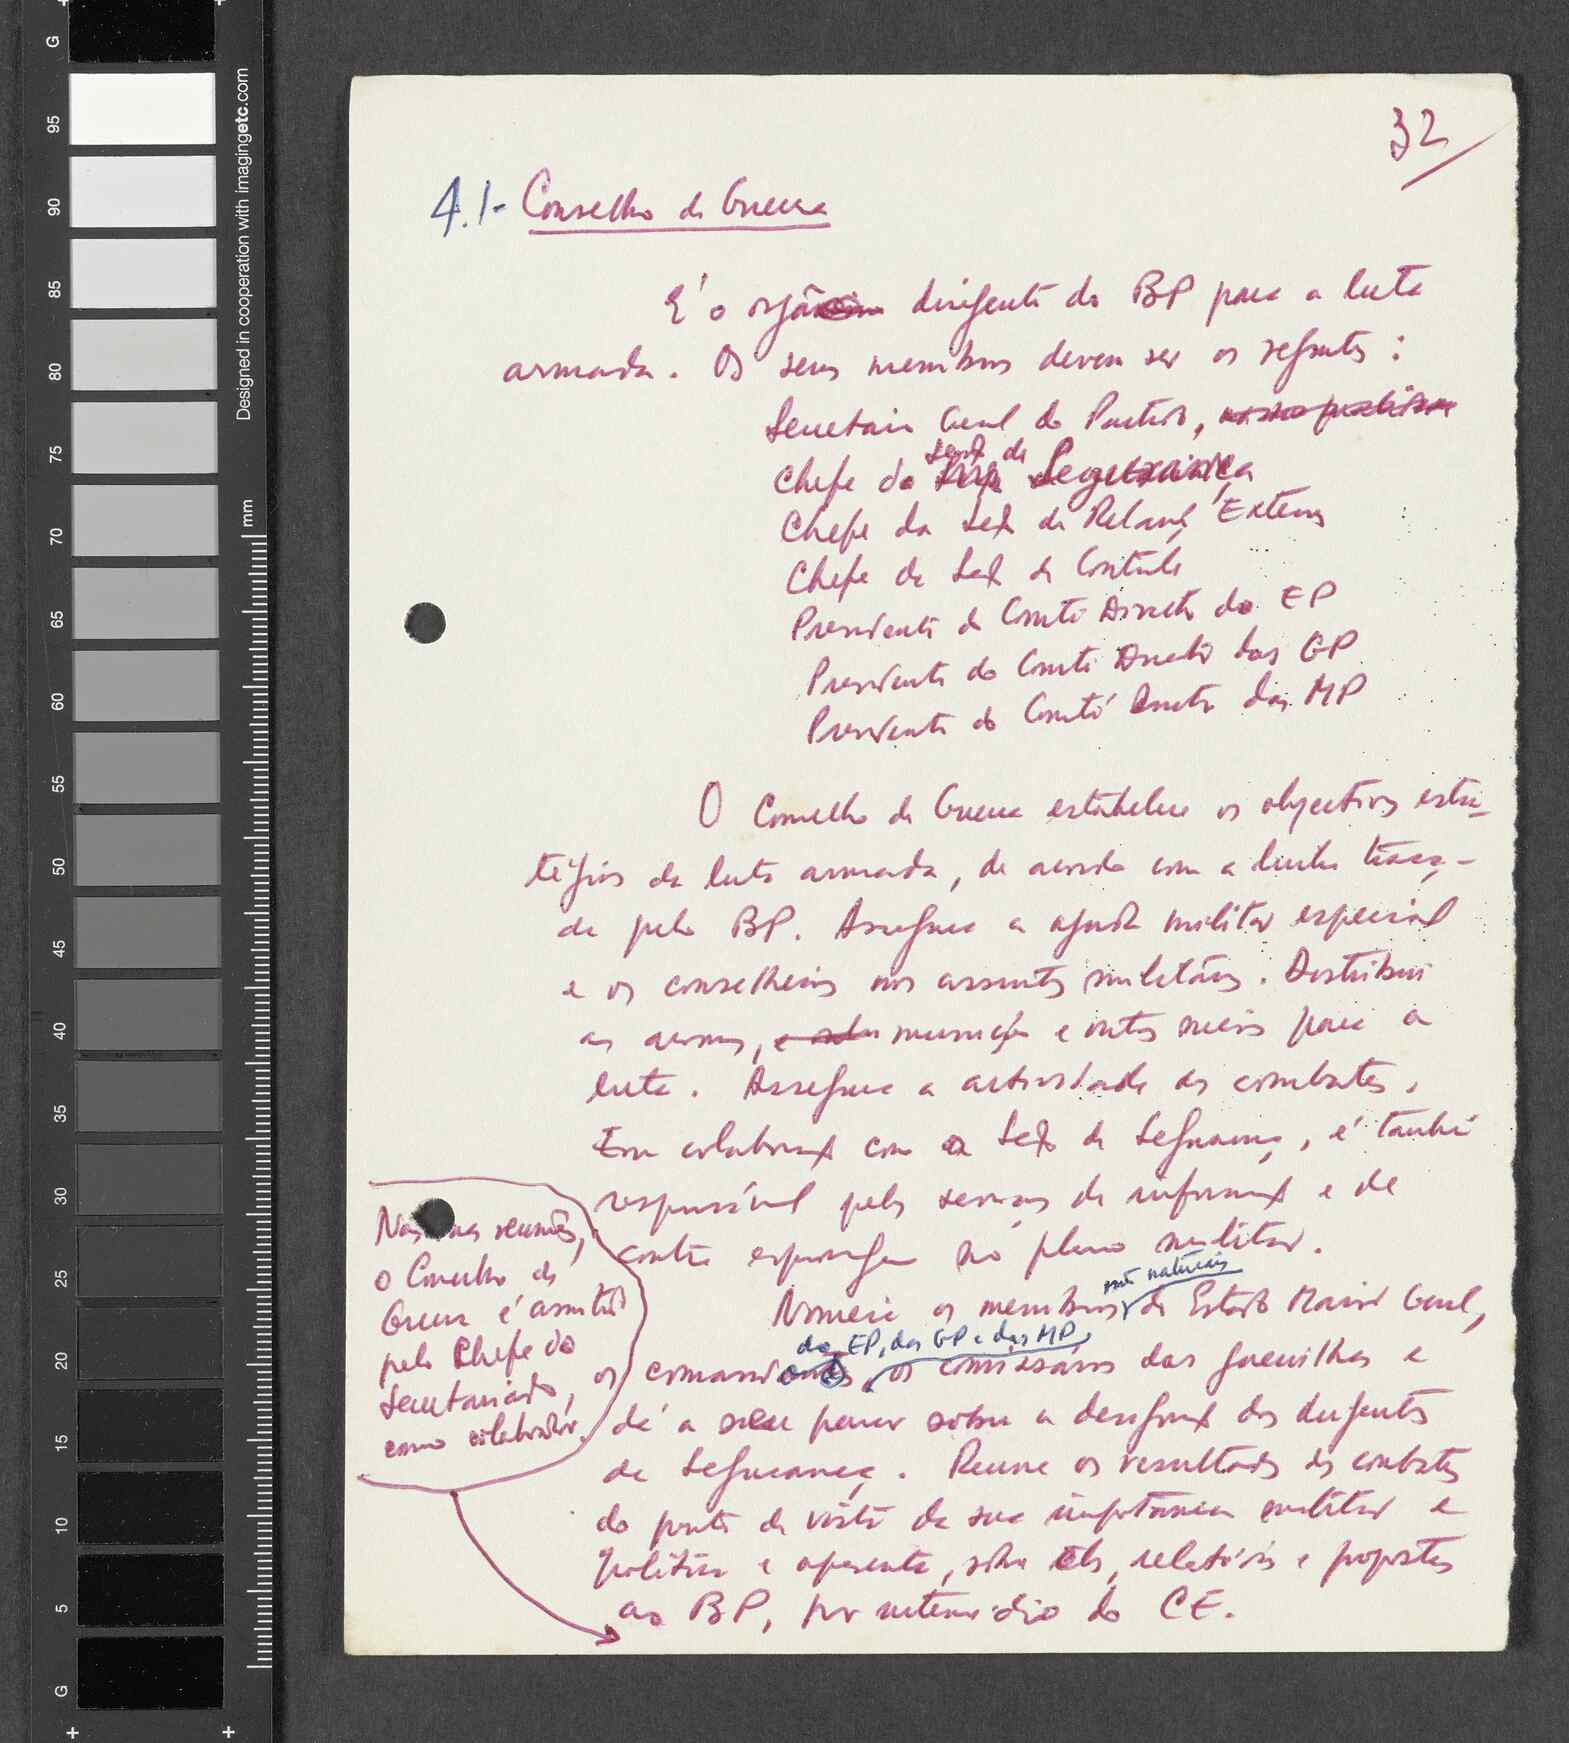 32
4.1- Conselho de Guerra
É o orgão dirigente do BP para a luta
armada. Os seus membros devem ser os segntes:
Secretario Geral do Partido,
Chefe da Secç de Segurança
Chefe da Secç de Relaç Externas
Chefe da Secç de Contrôle
Presidente do Comité Director do EP
Presidente do Comité Director das GP
Presidente do Comité Director das MP
O Conselho de Guerra estabelece os objectivos estra-
tégicos da luta armada, de acordo com a linha traça-
da pelo BP. Assegura a ajuda militar especial
e os conselheiros nos assuntos militares. Distribui
as armas, munições e outros meios para a
luta. Assegura a actividade dos combates.
Em colaboraç com a Secç de Segurança, é também
responsável pelos serviços de informaç e de
contra espionagem no plano militar.
Nomeia os membros não naturais do Estado Maior Geral,
os comandantes do EP, das GP e das MP, os comissários das guerrilhas e
dá a seu parecer sobre a designaç dos dirigentes
de Segurança. Reune os resultados dos combates
do ponto de vista da sua importância militar e
política e apresenta, sobre eles, relatórios e propostas
ao BP, por intermédio do CE.
Nas suas reuniões,
o Conselho de
Guerra é assistido
pelo Chefe do
Secretariado,
como colaborador.
Designed in cooperation with imagingetc.com
mm
G
95
90
85
80
75
70
65
60
55
50
45
40
35
30
25
20
15
10
5
G